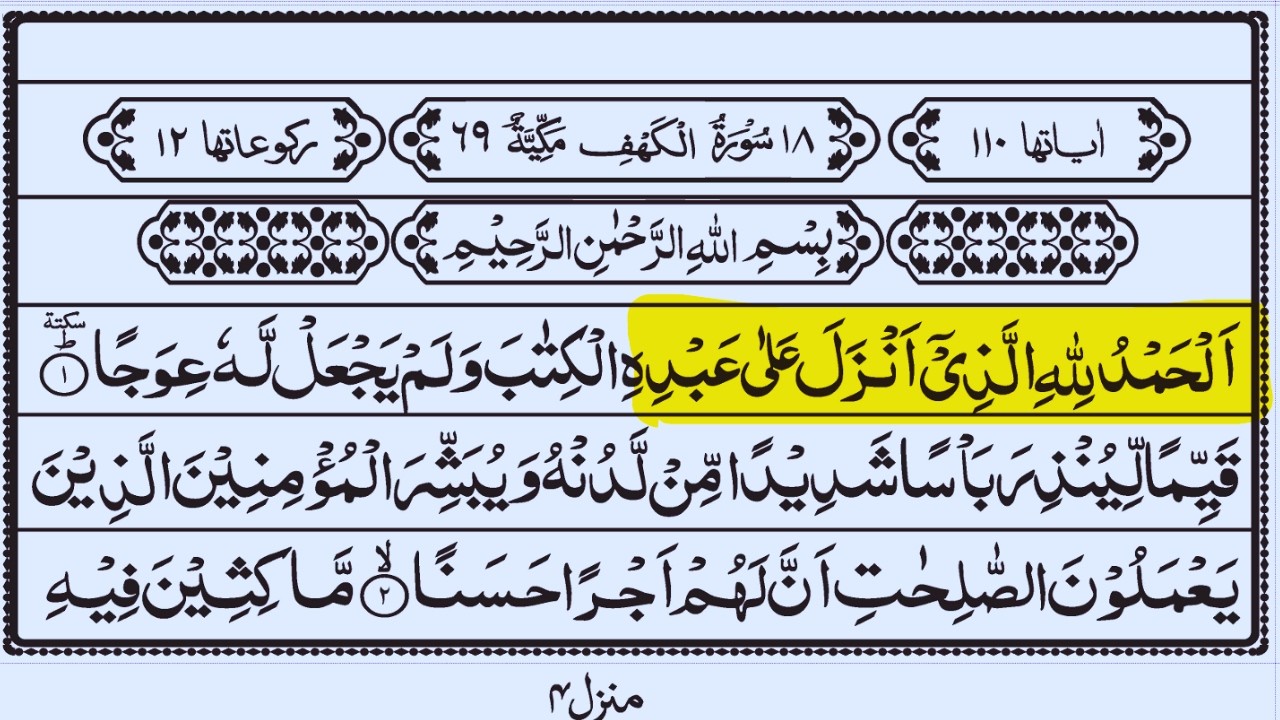 اٰياتها ١١٠ ١٨ سُوْرَةُ الْكَهْفِ مَكِّيَّةٌ ٦٩ ركوعاتها ١٢
بِسْمِ اللهِ الرَّحْمٰنِ الرَّحِيْمِ
اَلْحَمْدُ لِلّٰهِ الَّذِيْۤ اَنْزَلَ عَلٰى عَبْدِهِ الْكِتٰبَ وَلَمْ يَجْعَلْ لَّهٗ عِوَجًا ؕ سكتة ١
قَيِّمًا لِّيُنْذِرَ بَاْسًا شَدِيْدًا مِّنْ لَّدُنْهُ وَيُبَشِّرَ الْمُؤْمِنِيْنَ الَّذِيْنَ
يَعْمَلُوْنَ الصّٰلِحٰتِ اَنَّ لَهُمْ اَجْرًا حَسَنًا ۙ ٢ مَّاكِثِيْنَ فِيْهِ
منزل ۴